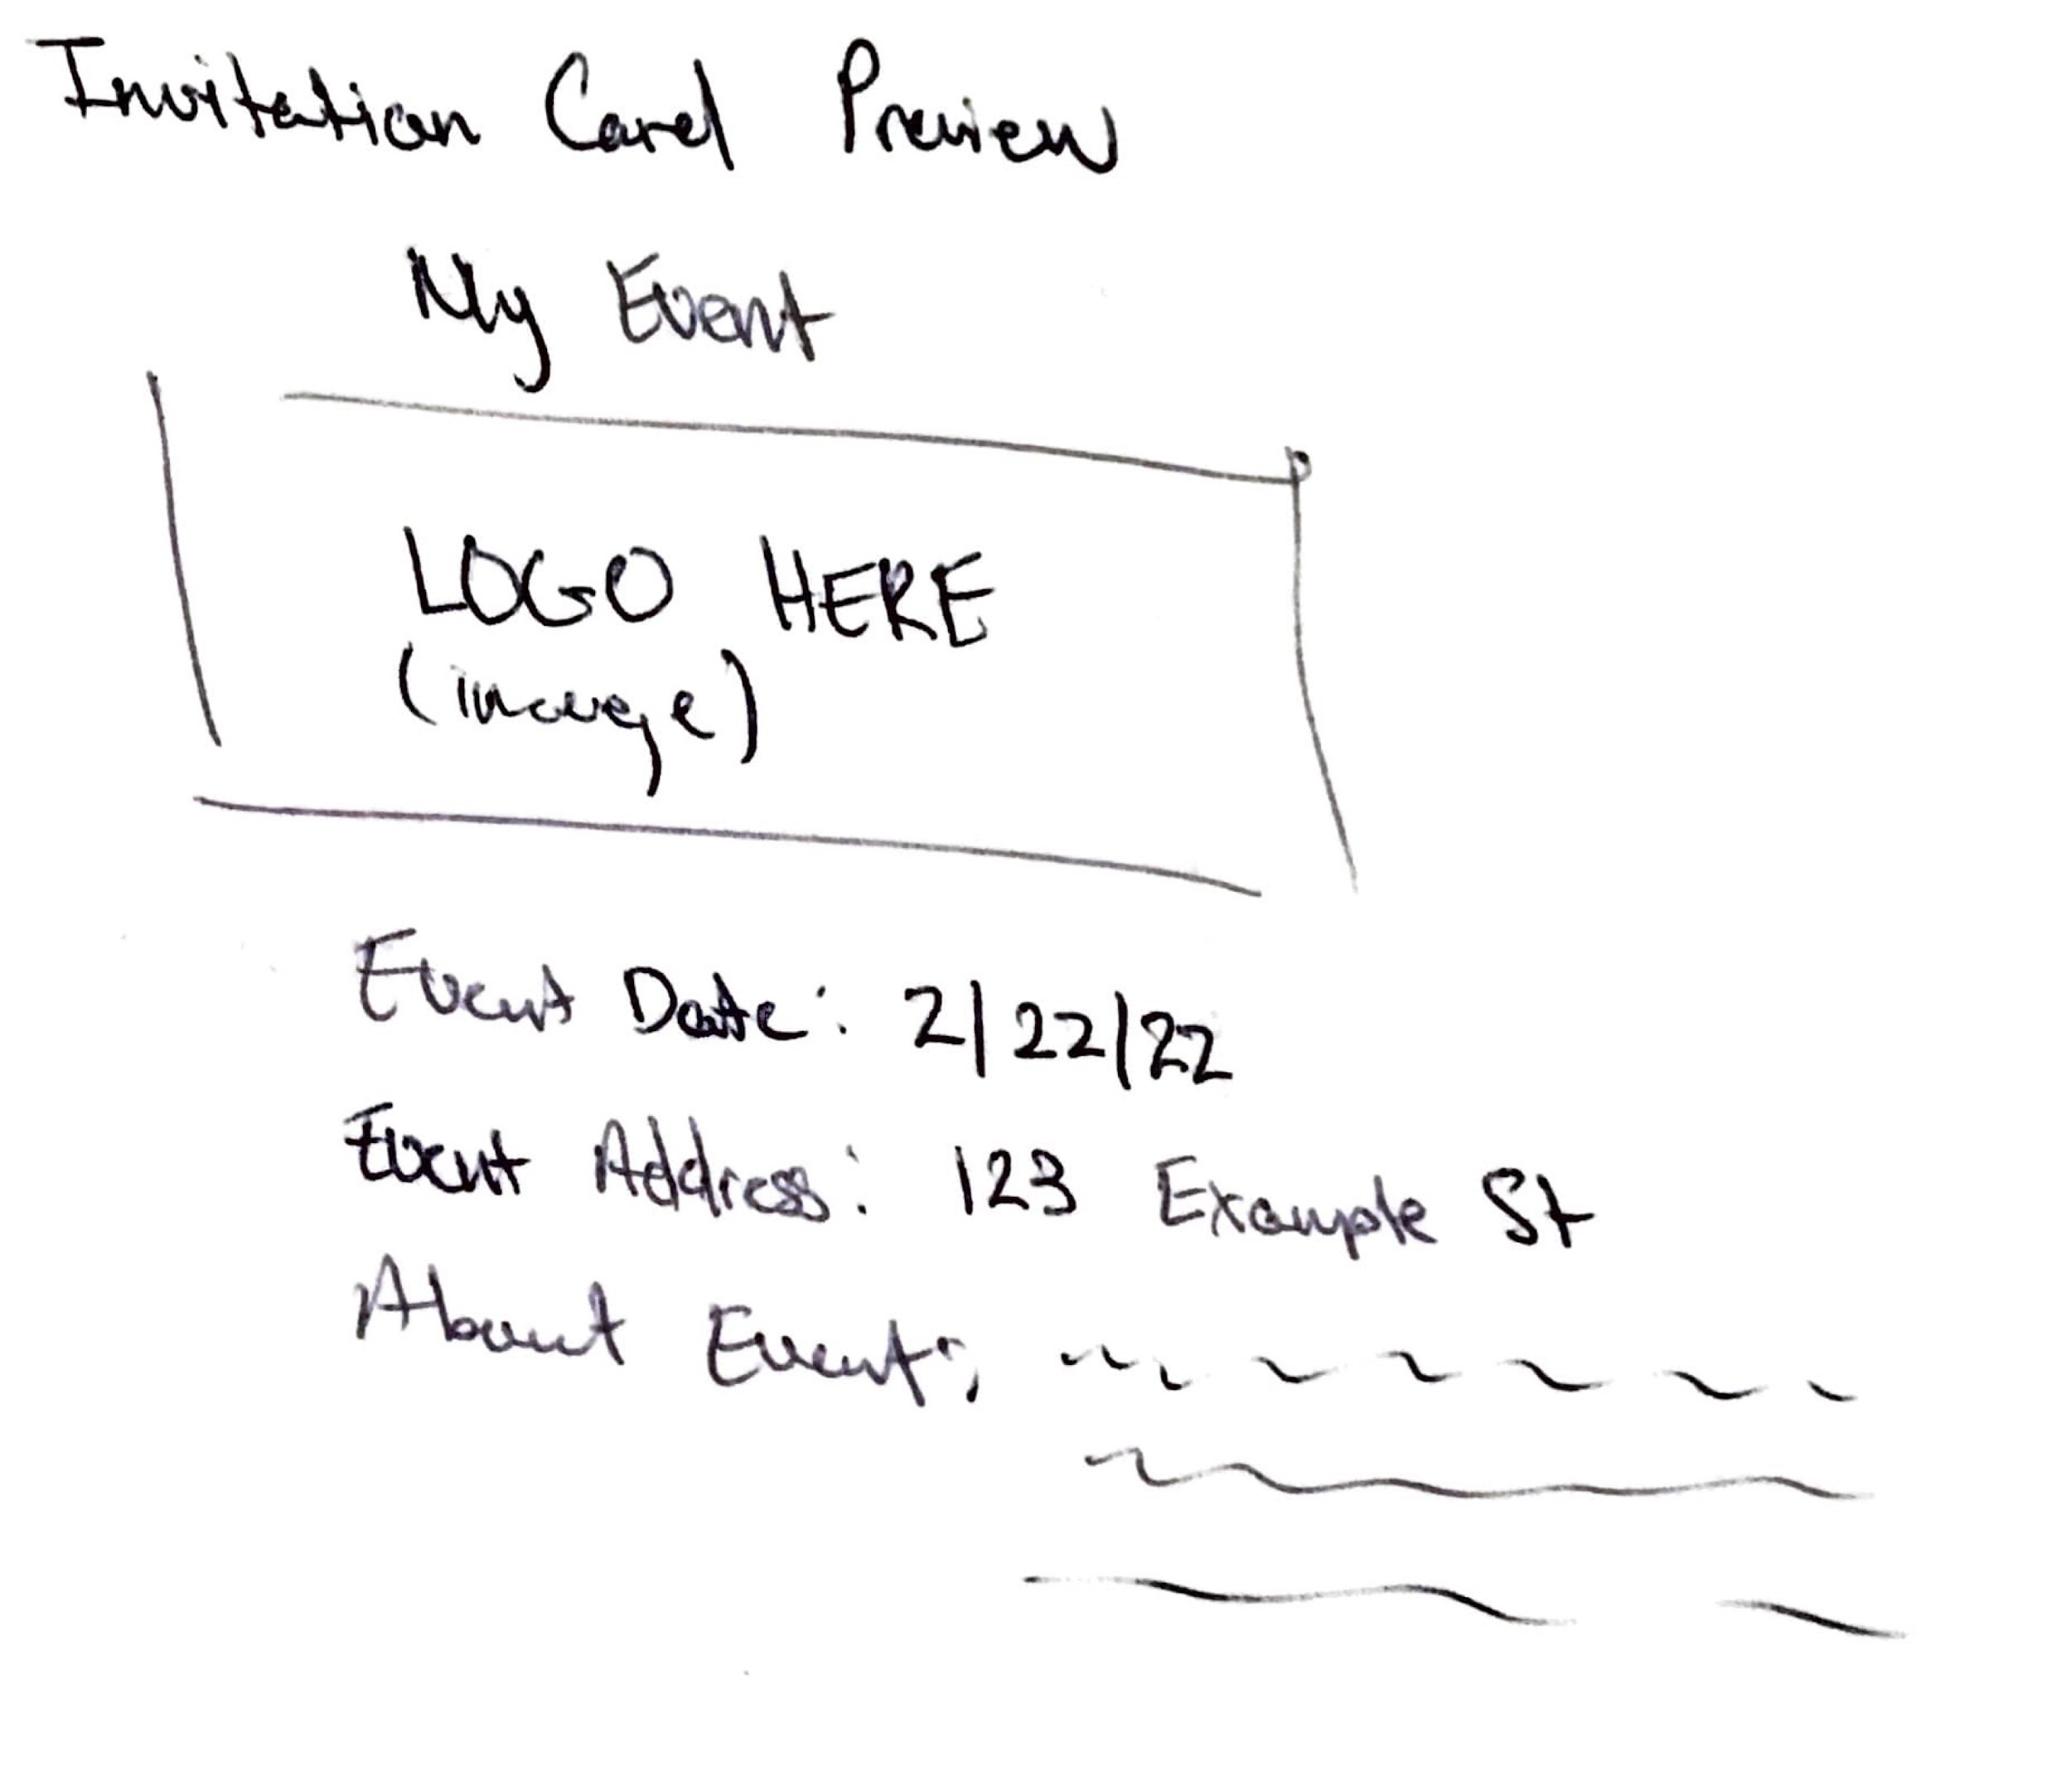 Invitation Card Preview
My Event
LOGO HERE
(image)
Event Date: 2/22/22
Event Address: 123 Example St
About Event: